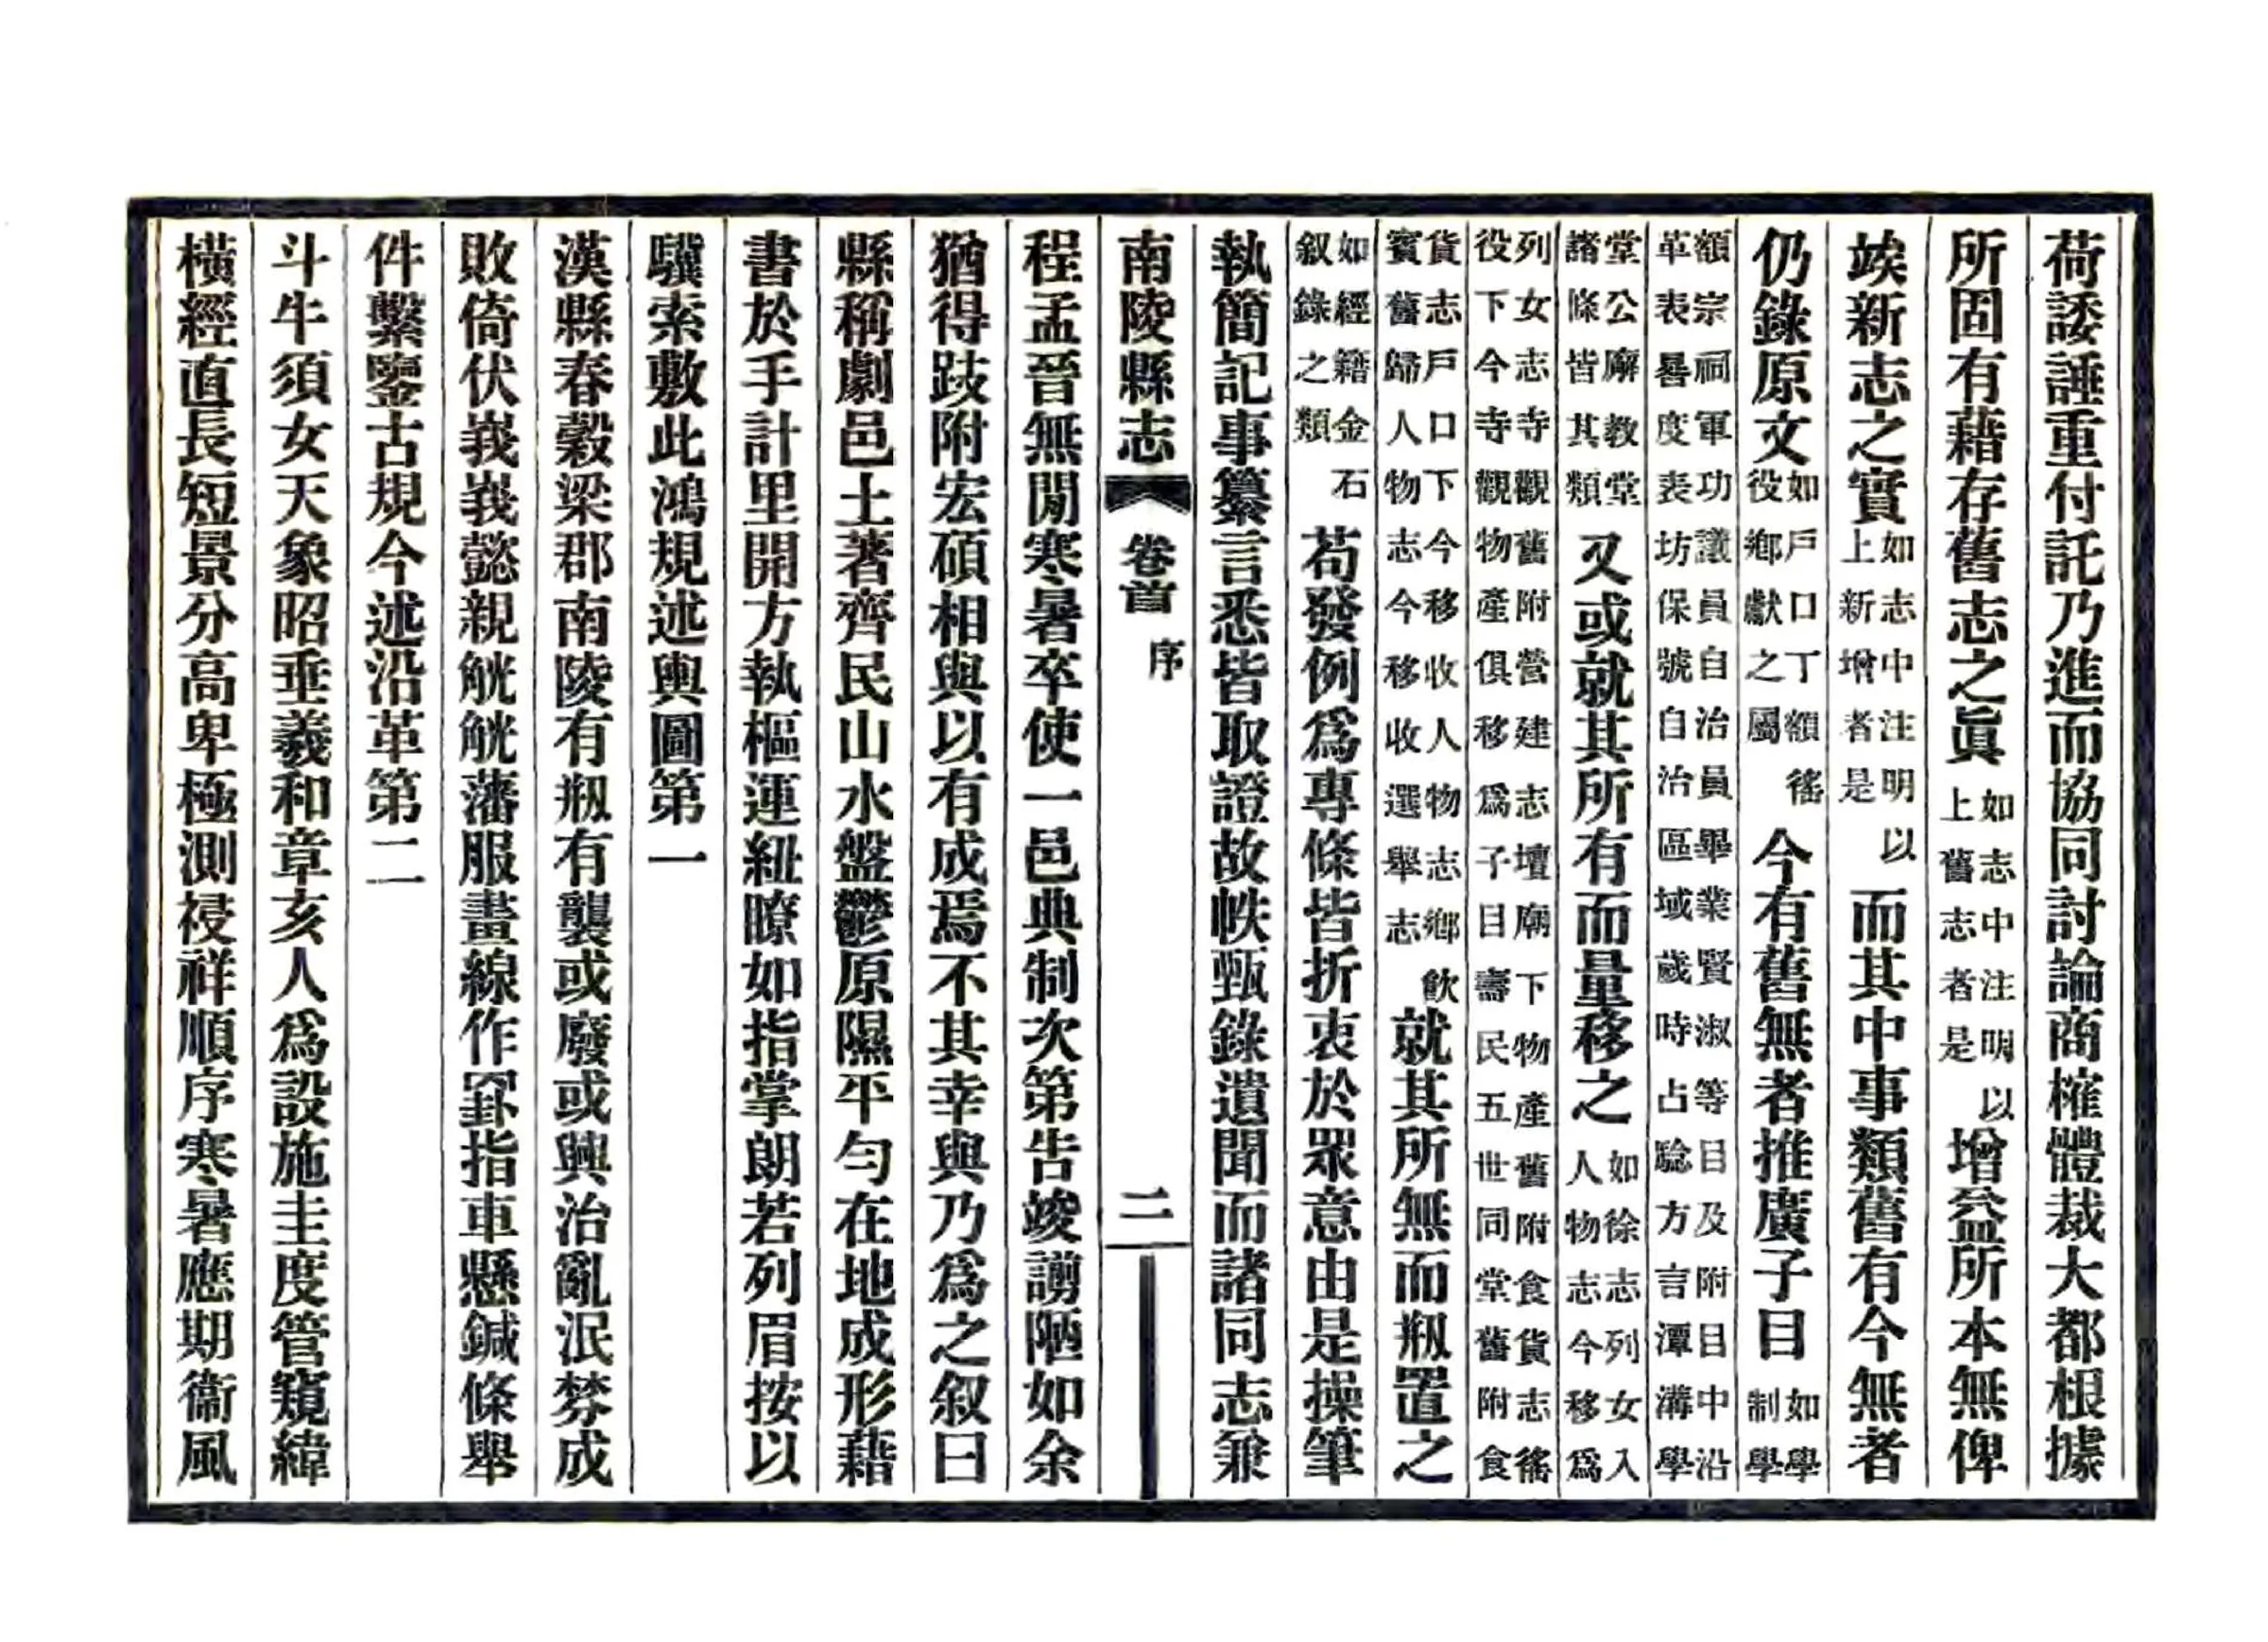 荷諉諈重付託乃進而協同討論商榷體裁大都根據
所固有藉存舊志之眞如志中注明以上舊志者是增益所本無俾
竢新志之實如志中注明以上新增者是而其中事類舊有今無者
仍錄原文如戶口丁額徭役鄉獻之屬今有舊無者推廣子目如學制學
額宗祠軍功議員自治員畢業賢淑等目及附目中沿
革表晷度表坊保號自治區域歲時占驗方言潭溝學
堂公廨教堂諸條皆其類又或就其所有而量移之如徐志列女入人物志今移爲
列女志寺觀舊附營建志壇廟下物產舊附食貨志徭
役下今寺觀物產俱移爲子目壽民五世同堂舊附食
貨志戶口下今移收人物志鄉飲賓舊歸人物志今移收選舉志就其所無而剏置之
如經籍金石叙錄之類苟發例爲專條皆折衷於眾意由是操筆
執簡記事纂言悉皆取證故帙甄錄遺聞而諸同志兼
南陵縣志 卷首 序 二
程孟晉無閒寒暑卒使一邑典制次第告竣謭陋如余
猶得跂附宏碩相與以有成焉不其幸與乃爲之叙曰
縣稱劇邑土著齊民山水盤鬱原隰平勻在地成形藉
書於手計里開方執樞運紐瞭如指掌朗若列眉按以
驥索敷此鴻規述輿圖第一
漢縣春穀梁郡南陵有剏有襲或廢或興治亂泯棼成
敗倚伏峩峩懿親觥觥藩服畫線作罫指車懸鍼條舉
件繫鑒古規今述沿革第二
斗牛須女天象昭垂羲和章亥人爲設施圭度管窺緯
橫經直長短景分高卑極測祲祥順序寒暑應期衞風